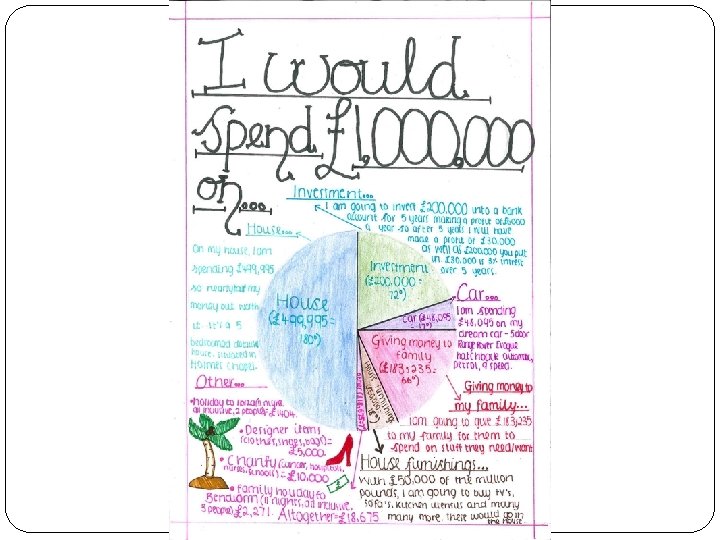 I would
spend £1,000,000
on...
Investment...
I am going to invert £200,000 into a bank
account for 5 years making a profit of £6000
a year so after 5 years I will have
made a profit of £30,000
as well as £200,000 you put
in £30,000 is 3% interest
over 5 years.
House...
On my house, I am
spending £499,995
so nearly half my
money but worth
it. It's a 5
bedroomed detached
house, situated in
Holmes Chapel.
Investment
(£200,000 =
72°)
House
(£499,995=
180°)
Car (£48,095
=17°)
Giving money to
family
(£183,235=
66°)
Car...
I am spending
£48,095 on my
dream car - 5door
Range Rover Evoque
hatchback automatic,
petrol, 9 speed.
Giving money to
my family...
I am going to give £183,235
to my family for them to
spend on stuff they need/want
Other...
•holiday to
all inclusive, 2 people)£1404.
• Designer items
(clothes, shoes, bags)=
£5,000
• Charity (cancer, hospitals,
nurses, schools) = £10,000
• Family holiday to
Benidorm (11 nights, all inclusive,
3 people) £2,271.
Altogether=£18,675
House furnishings...
With £50,000 of the million
pounds, I am going to buy TV's,
sofa's, kitchen utensils and many
many more. These would go in
the house.